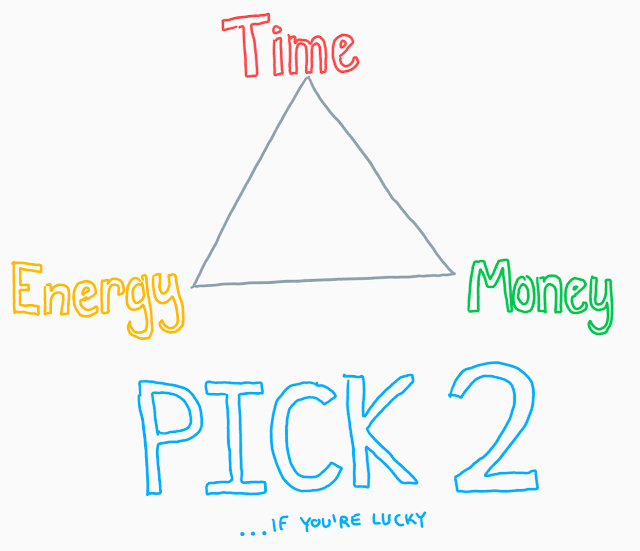 Time
Energy
Money
PICK 2
...IF YOU'RE LUCKY